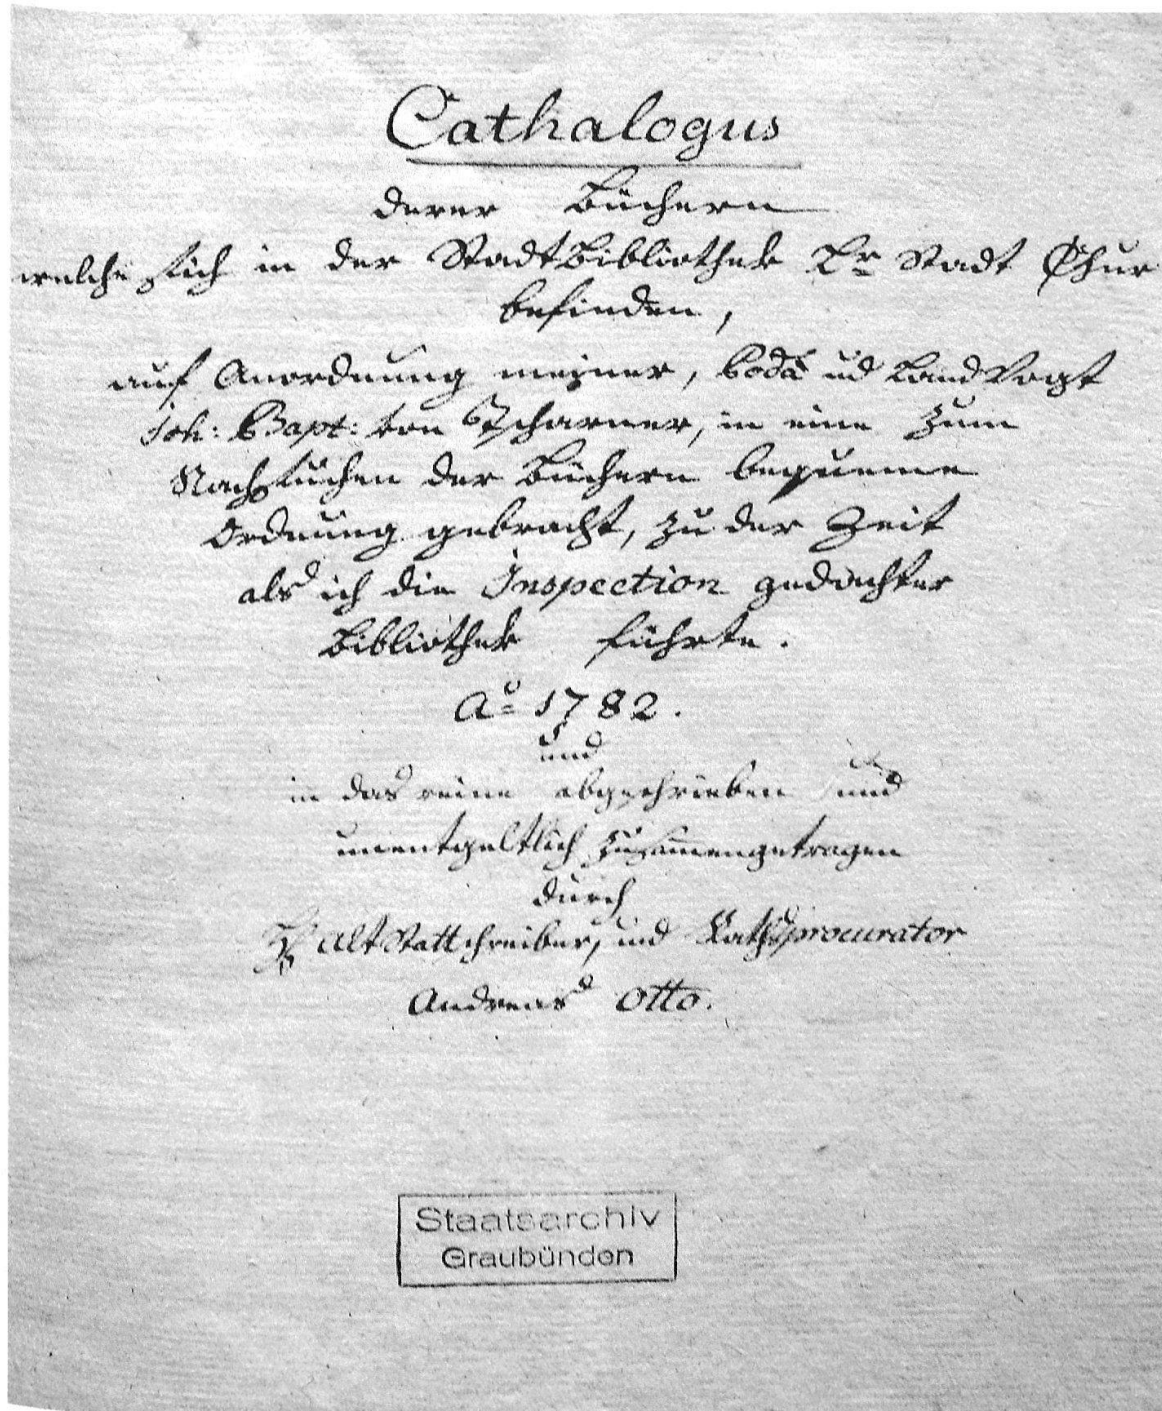 Cathalogus
derer Büchern
welche sich in der StadtBibliothek Lr Stadt Chur
befinden,
auf Anordnung meiner, ud LandVogt
Joh: Bapt: von Tscharner, in eine zum
Nachsuchen der Büchern bequeme
Ordnung gebracht, zu der Zeit
als ich die Inspection gedachter
Bibliothek führte.
Ao 1782.
und
in das reine abgeschrieben und
unentgeltlich zusammengetragen
durch
Alt Stattschreiber, und Rathsprocurator
Andreas Otto.
Staatsarchiv
Graubünden